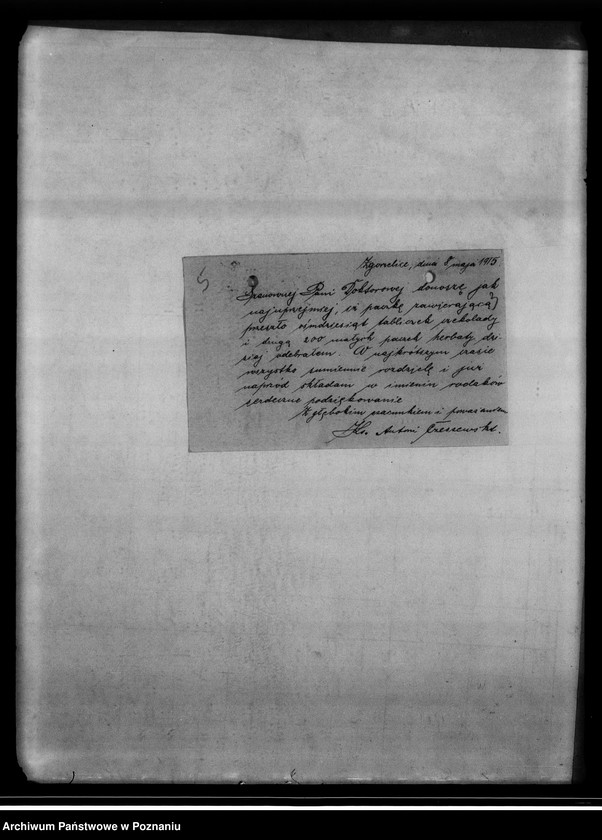 Zgorzelice, dnia 8 maja 1915
Szanownej Pani Doktorowej donoszę jak
najuprzejmiej, iż paczkę zawierającą
przeszło ośmdziesiąt tabliczek czekolady
i drugą 200 małych paczek herbaty dzi-
siaj odebrałem. W najkrótszym czasie
wszystko sumiennie rozdzielę i już
naprzód składam w imieniu rodaków
serdeczne podziękowanie
Z głębokim szacunkiem i poważaniem
Ks. Antoni
Archiwum Państwowe w Poznaniu